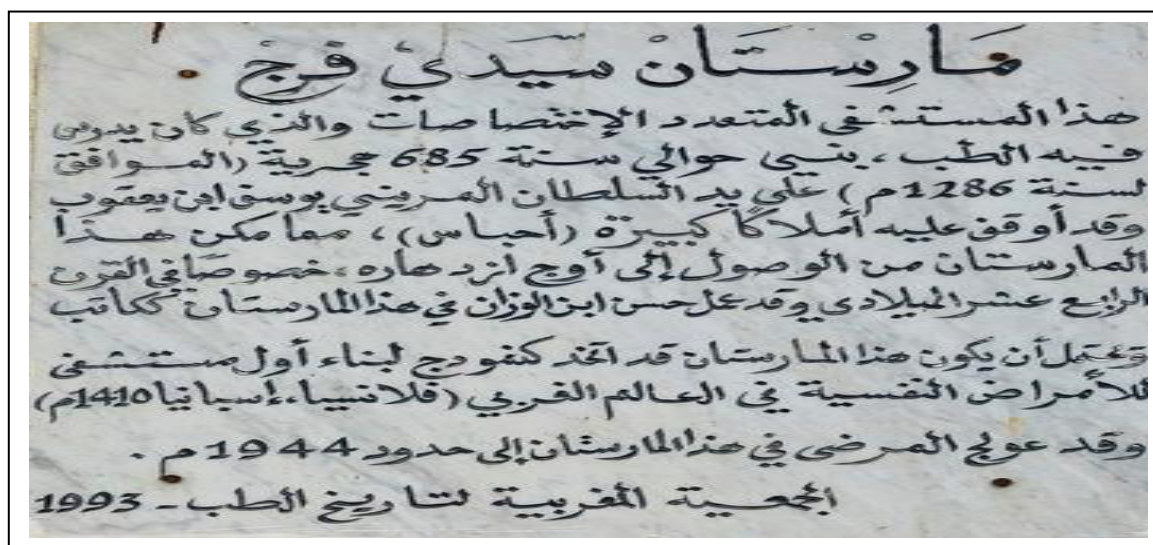 مَارِسْتَانْ سَيِّدِيْ فَرَجْ .
هذا المستشفى المتعدد الإختصاصات والذي كان يدرس
فيه الطب ، بني حوالي سنة 685 هجرية (الموافق
لسنة 1286م) على يد السلطان المريني يوسف ابن يعقوب
وقد أوقف عليه أملاكًا كبيرة (أحباس) ، مما مكن هذا
المارستان من الوصول إلى أوج ازدهاره ، خصوصًا في القرن
الرابع عشر الميلادي وقد عمل حسن ابن الوزان في هذا المارستان ككاتب
ويحتمل أن يكون هذا المارستان قد اتخذ كنمودج لبناء أول مستشفى
للأمراض النفسية في العالم الغربي (فلانسيا ، إسبانيا 1410م)
وقد عولج المرضى في هذا المارستان إلى حدود 1944 م .
الجمعية المغربية لتاريخ الطب - 1993